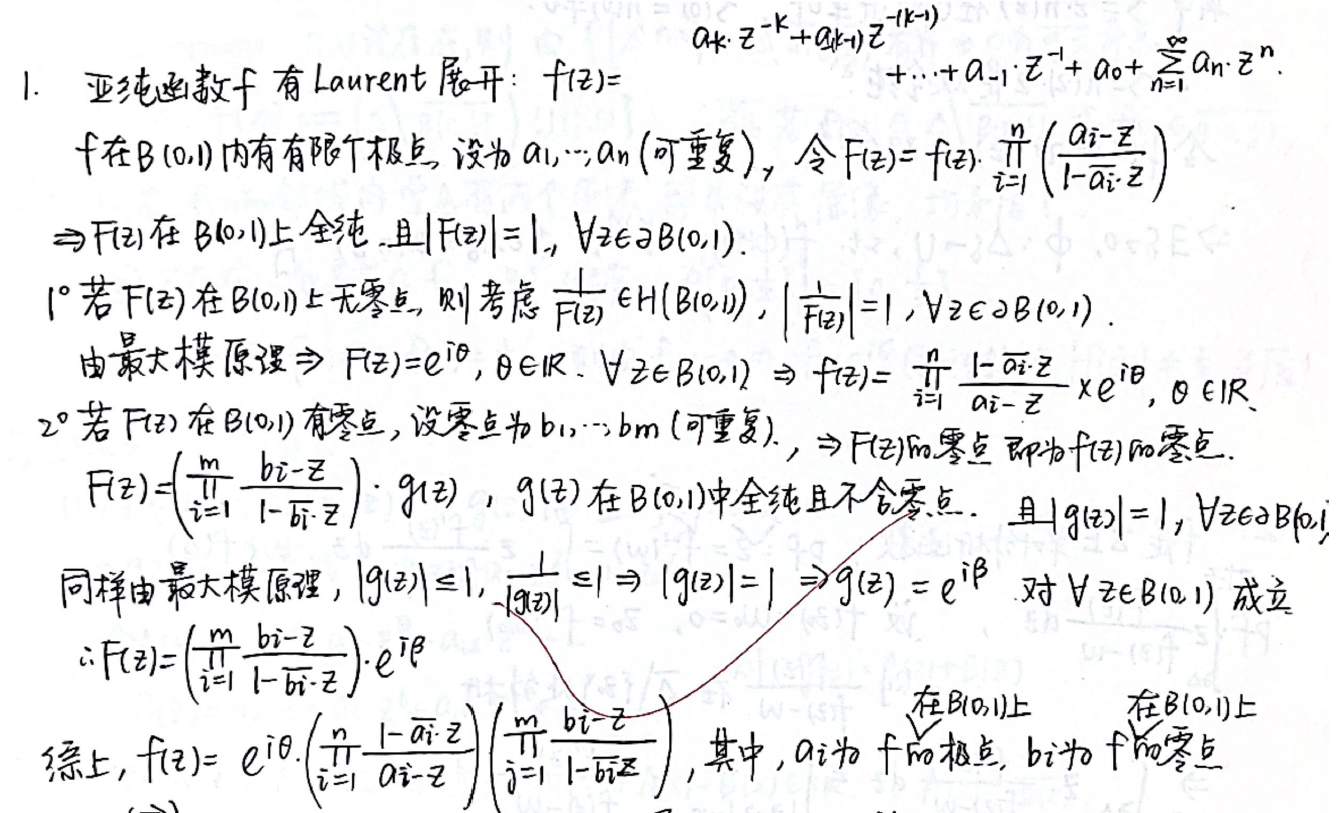 1. 亚纯函数f 有Laurent展开: f(z)= a_{-k}·z^{-k}+a_{-(k-1)}z^{-(k-1)}
+⋯+a_{-1}·z^{-1}+a_0+∑_{n=1}^{∞}a_n·z^n.
f在B(0,1)内有有限个极点,设为a_1,⋯,a_n(可重复), 令F(z)=f(z)·∏_{i=1}^{n}((a_i-z)/(1-\overline{a_i}·z))
⇒F(z)在B(0,1)上全纯.且|F(z)|=1, ∀z∈∂B(0,1).
1°若F(z)在B(0,1)上无零点,则考虑 1/F(z)∈H(B(0,1)), |1/F(z)|=1, ∀z∈∂B(0,1).
由最大模原理⇒ F(z)=e^{iθ}, θ∈ℝ. ∀z∈B(0,1) ⇒ f(z)=∏_{i=1}^{n}(1-\overline{a_i}·z)/(a_i-z)×e^{iθ}, θ∈ℝ.
2°若F(z)在B(0,1)有零点,设零点为b_1,⋯,b_m(可重复)., ⇒F(z)的零点即为f(z)的零点.
F(z)=(∏_{i=1}^{m}(b_i-z)/(1-\overline{b_i}·z))·g(z), g(z)在B(0,1)中全纯且不含零点. 且|g(z)|=1, ∀z∈∂B(0,1)
同样由最大模原理, |g(z)|≤1, 1/|g(z)|≤1⇒|g(z)|=1 ⇒g(z)=e^{iβ} 对∀z∈B(0,1) 成立
∴F(z)=(∏_{i=1}^{m}(b_i-z)/(1-\overline{b_i}·z))·e^{iβ}
在B(0,1)上 在B(0,1)上
综上, f(z)= e^{iθ}·(∏_{i=1}^{n}(1-\overline{a_i}·z)/(a_i-z))(∏_{j=1}^{m}(b_i-z)/(1-\overline{b_i}z)), 其中, a_i为f的极点, b_i为f的零点